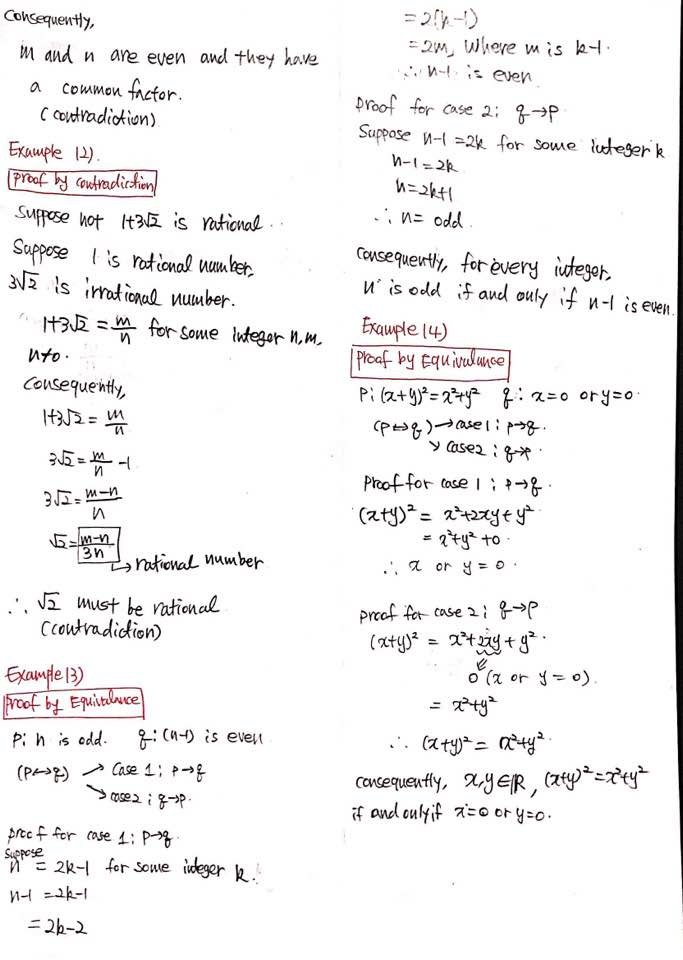 Consequently,
m and n are even and they have
a common factor.
(contradiction)
Example 12).
proof by contradiction
Suppose not 1+3√2 is rational.
Suppose 1 is rational number,
3√2 is irrational number.
1+3√2 = m/n for some integer n, m,
n≠0.
Consequently,
1+3√2 = m/n
3√2 = m/n -1
3√2 = m-n/n
√2 = m-n/3n
→ rational number
∴ √2 must be rational
(contradiction)
Example 13)
proof by Equivalance
P: n is odd. q: (n-1) is even
(P↔q) → case 1: p→q
↘ case2: q→p.
proof for case 1: p→q.
suppose
n = 2k-1 for some integer k.
n-1 = 2k-1
= 2k-2
= 2(k-1)
= 2m, where m is k-1.
∴ n-1 is even
proof for case 2: q→p
Suppose n-1=2k for some integer k
n-1=2k
n=2k+1
∴ n= odd.
Consequently, for every integer,
n is odd if and only if n-1 is even.
Example 14)
proof by Equivalance
P: (x+y)²=x²+y² q: x=0 or y=0.
(P↔q) → case 1: p→q.
↘ case2: q→p.
proof for case 1: p→q.
(x+y)² = x²+2xy+y²
= x²+y²+0.
∴ x or y = 0.
proof for case 2: q→p
(x+y)² = x²+2xy+y².
0 (x or y = 0).
= x²+y²
∴ (x+y)² = x²+y².
Consequently, x,y∈ℝ, (x+y)²=x²+y²
if and only if x=0 or y=0.